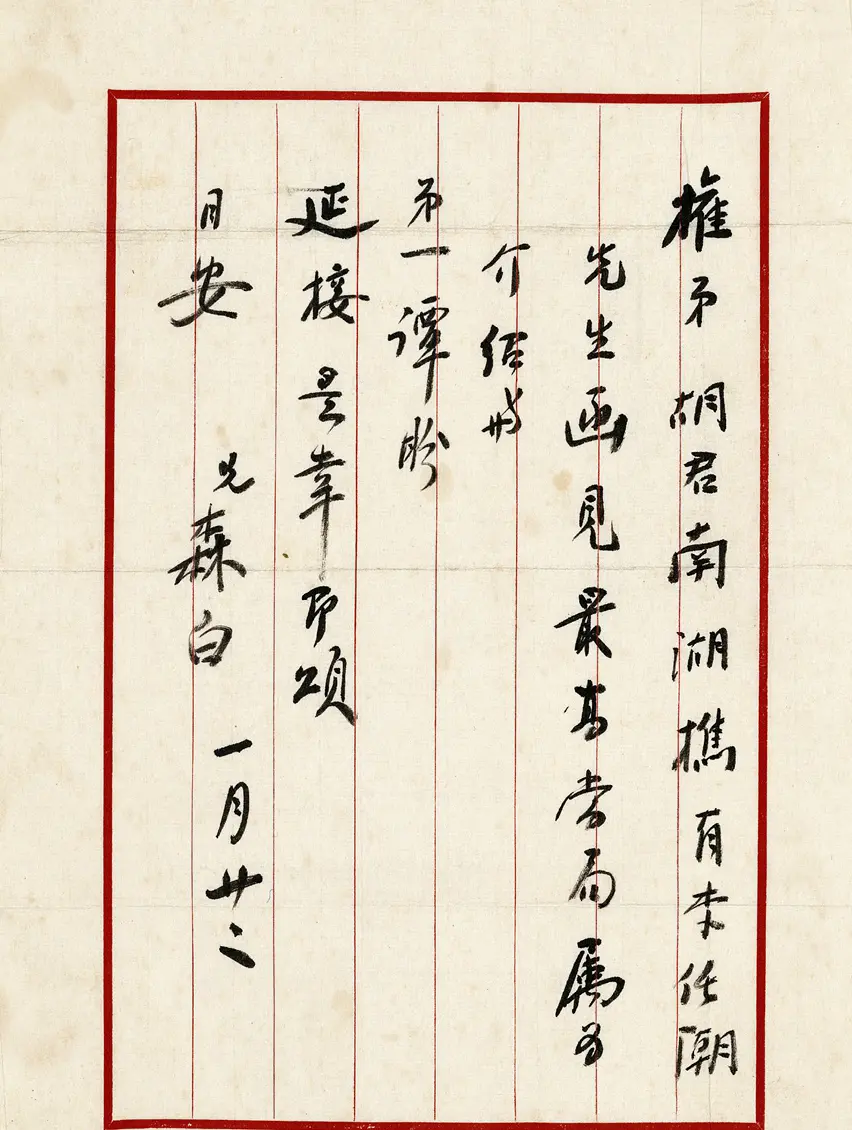 權弟 胡君南湖攜有李任潮
先生函見最高當局屬為
介紹於
弟一譚盼
延接是幸即頌
日安 兄森白 一月廿二